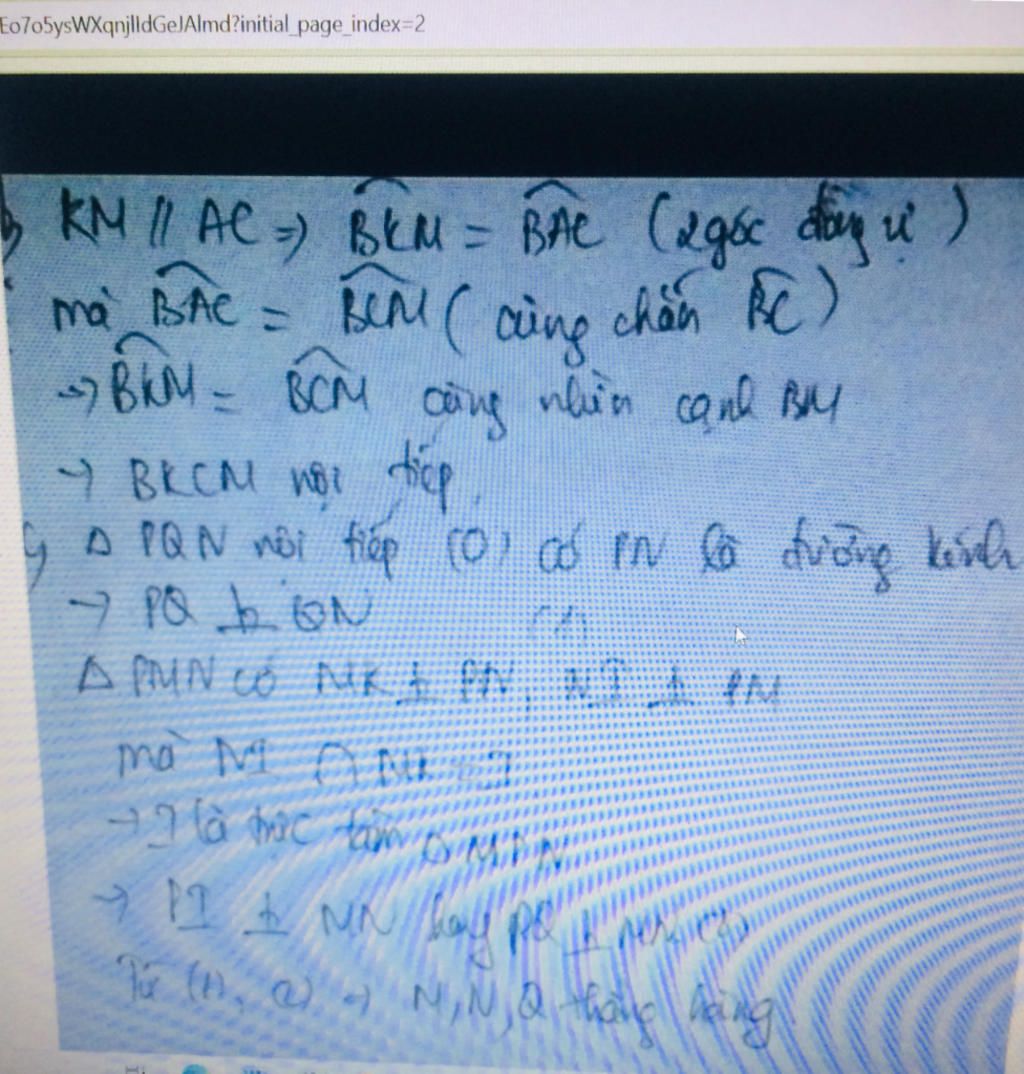 Eo7o5ysWXqnjlIdGeJAlmd?initial_page_index=2
KM // AC => BKM = BAC (2 góc đồng vị)
mà BAC = BCM (cùng chắn BC)
=> BKM = BCM cùng nhìn cạnh BM
-> BKCM nội tiếp
c) Δ PQN nội tiếp (O) có PN là đường kính
-> PQ ⊥ QN (1)
Δ PMN có MK ⊥ PN, NI ⊥ PM
mà NI ∩ MK = J
-> J là trực tâm Δ MPN
-> PI ⊥ MN hay PQ ⊥ MN (2)
Từ (1), (2) => M, N, Q thẳng hàng